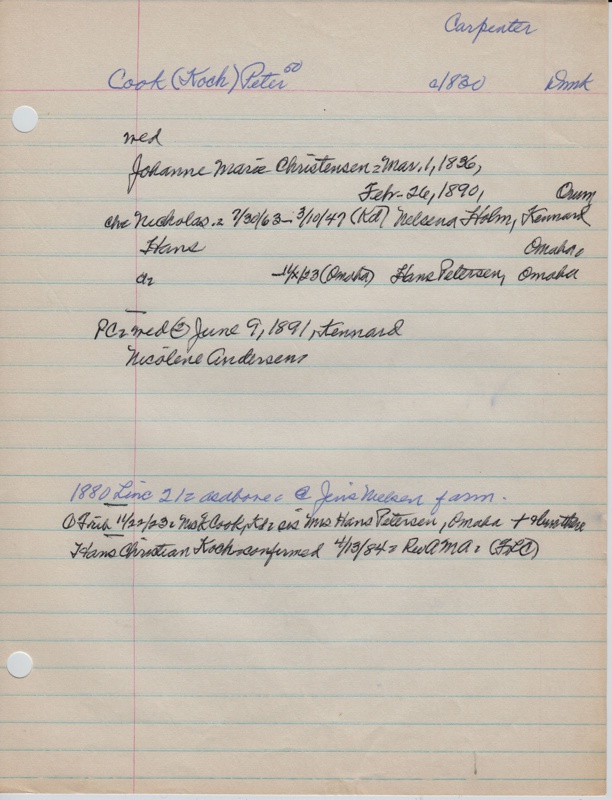 Carpenter
Cook (Koch) Peter 50 c/830 Dnmk
med
Johanne Marie Christensen = Mar. 1, 1836,
Feb- 26, 1890, Orum
chr Nicholas = 7/30/63 - 3/10/47 (Kd) Nelsena Holm, Kennard
Hans Omaha
dr (Omaha) Hans Petersen, Omaha
PC = med © June 9, 1891, Kennard
Nicolene Andersen
1880 Linc 21 = as above = @ Jens Nielsen farm.
Trib 11/22/23 = Cook, Kd = sis Mrs Hans Petersen, Omaha +
Hans Christian Koch = confirmed 4/13/84 = Rev AMA = (FLC)